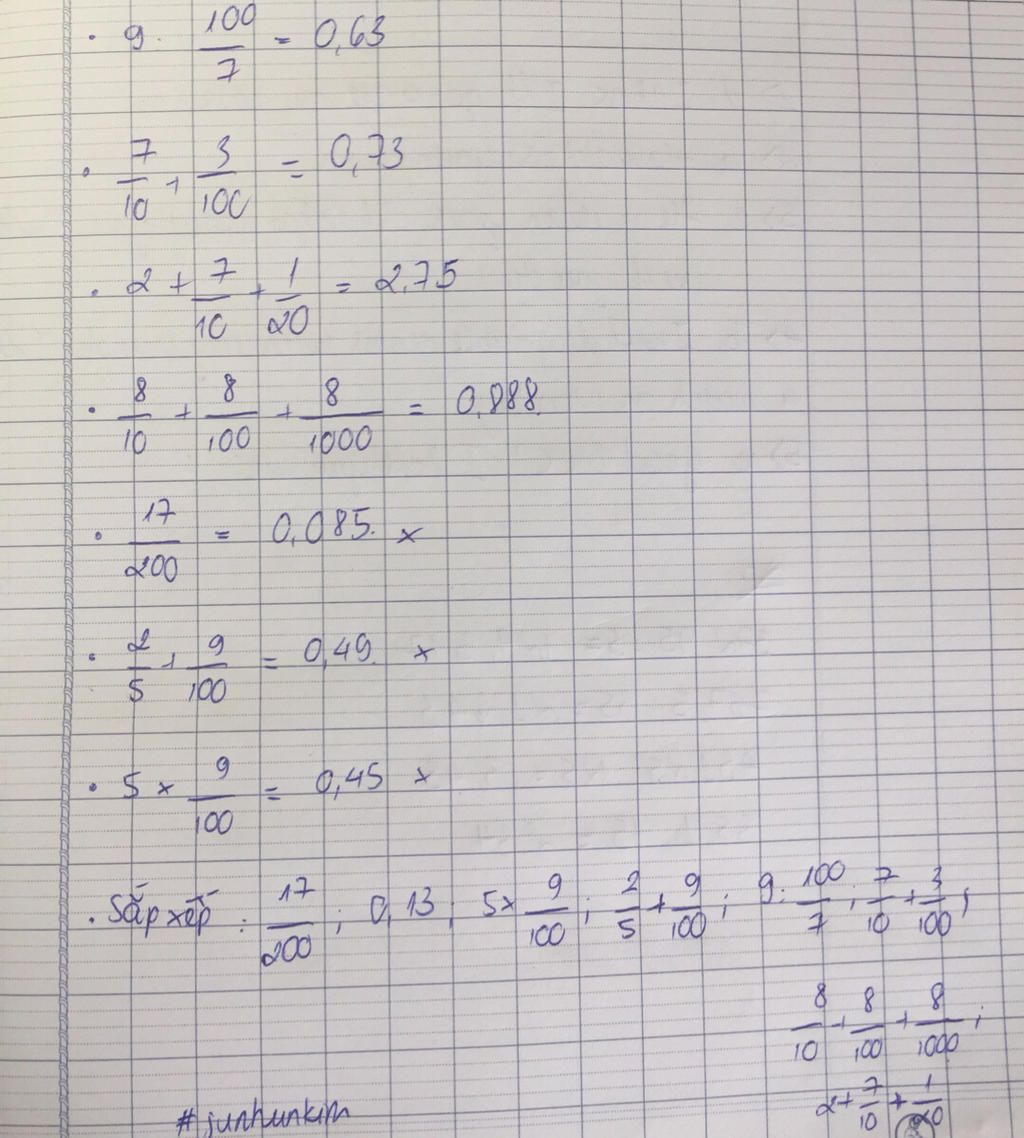 • 9 : 100/7 = 0,63
• 7/10 + 3/100 = 0,73
• 2 + 7/10 + 1/20 = 2,75
• 8/10 + 8/100 + 8/1000 = 0,888
• 17/200 = 0,085. ×
• 2/5 + 9/100 = 0,49. ×
• 5 × 9/100 = 0,45 ×
• Sắp xếp : 17/200 ; 0,13 ; 5× 9/100 ; 2/5 + 9/100 ; 9 : 100/7 ; 7/10 + 3/100 ;
8/10 + 8/100 + 8/1000 ;
2 + 7/10 + 1/20
#junhunkim